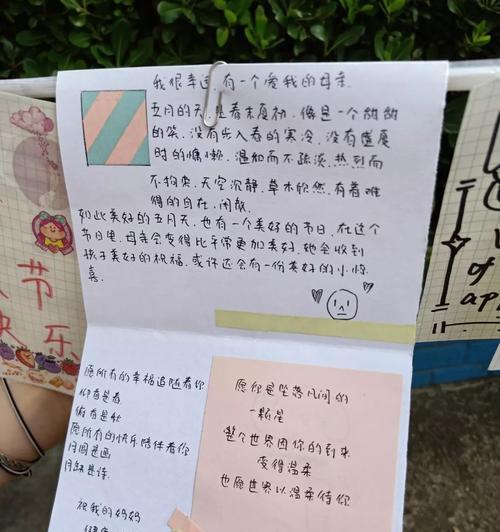 我很幸运,有一个爱我的母亲.
五月的天,是春末夏初,像是一个甜甜
的笑,没有乍入春的寒冷,没有盛夏
时的慵懒,温和而不疏淡,热烈而
不拘束,天空沉静,草木欣然,有着难
得的自在,闲散.
如此美好的五月天,也有一个美好的节日,在这个
节日里,母亲会变得比平常更加美好,她会收到
孩子美好的祝福,或许还会有一份美好的小惊
喜.
愿所有的幸福追随着你
仰看是春
俯看是秋
愿所有的快乐陪伴着你
月圆是画
月缺是诗.
祝我的妈妈
健康
愿你是坠落凡间的
一颗星
整个世界因你的到来
变得温柔
也愿世界以温柔待你
节
快乐
of